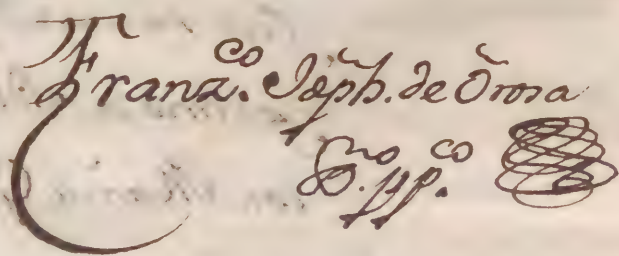 Franz.ᶜᵒ Jõph. de Õrosa
S.ⁿᵒ pp.ᶜᵒ